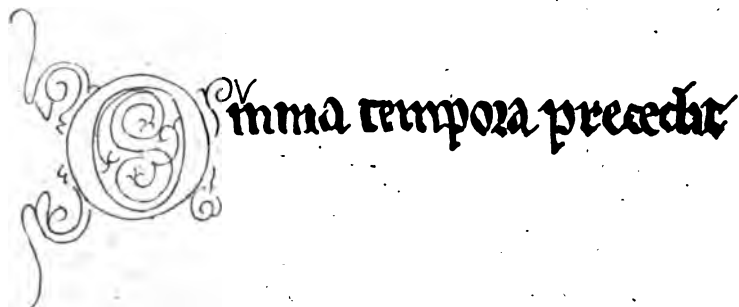 Omnia tempora precedit